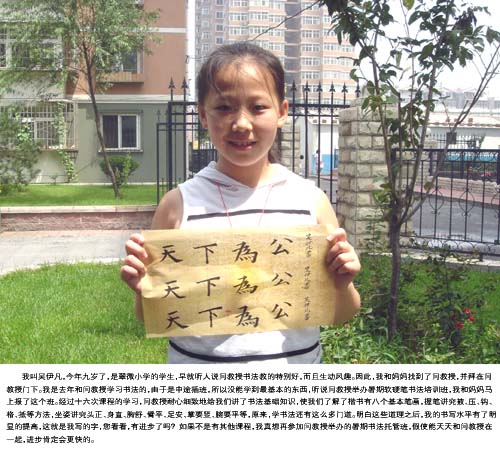 天下為公
天下為公
天下為公
我叫吴伊凡,今年九岁了,是翠微小学的学生,早就听人说闫教授书法教的特别好,而且生动风趣。因此,我和妈妈找到了闫教授,并拜在闫
教授门下。我是去年和闫教授学习书法的,由于是中途插班,所以没能学到最基本的东西,听说闫教授举办暑期软硬笔书法培训班,我和妈妈马
上报了这个班。经过十六次课程的学习,闫教授耐心细致地给我们讲了书法基础知识,使我们了解了楷书有八个基本笔画,握笔讲究擫、压、钩、
格、抵等方法,坐姿讲究头正、身直、胸舒、臂平、足安、掌要竖、腕要平等,原来,学书法还有这么多门道。明白这些道理之后,我的书写水平有了明
显的提高,这就是我写的字,您看看,有进步了吗?如果不是有其他课程,我真想再参加闫教授举办的暑期书法托管班,假使能天天和闫教授在
一起,进步肯定会更快的。